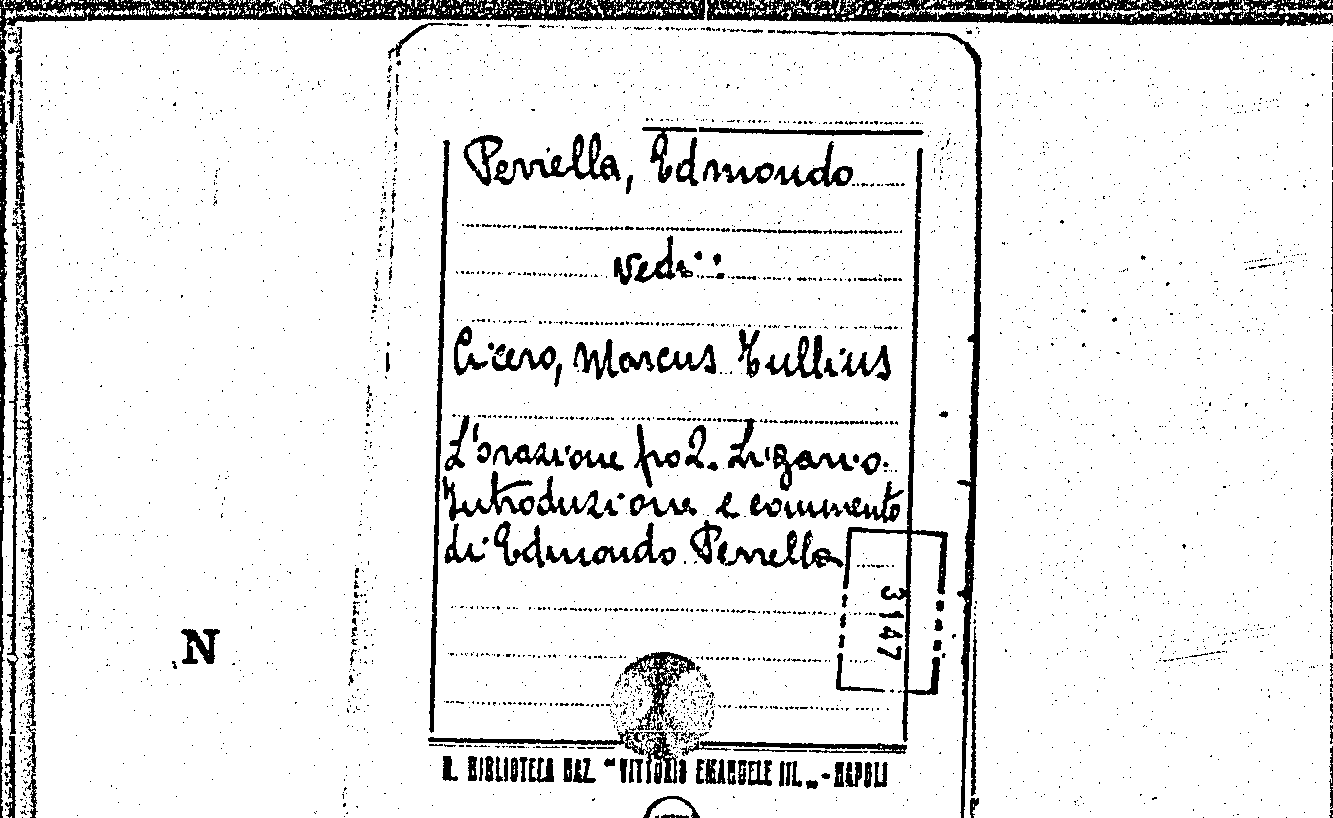 Perrella, Edmondo
Vedi:
Cicero, Marcus Tullius
L'orazione pro Q. Ligario.
Introduzione e commento
di Edmondo Perrella
3147
N
R. BIBLIOTECA NAZ. "VITTORIO EMANUELE III." - NAPOLI